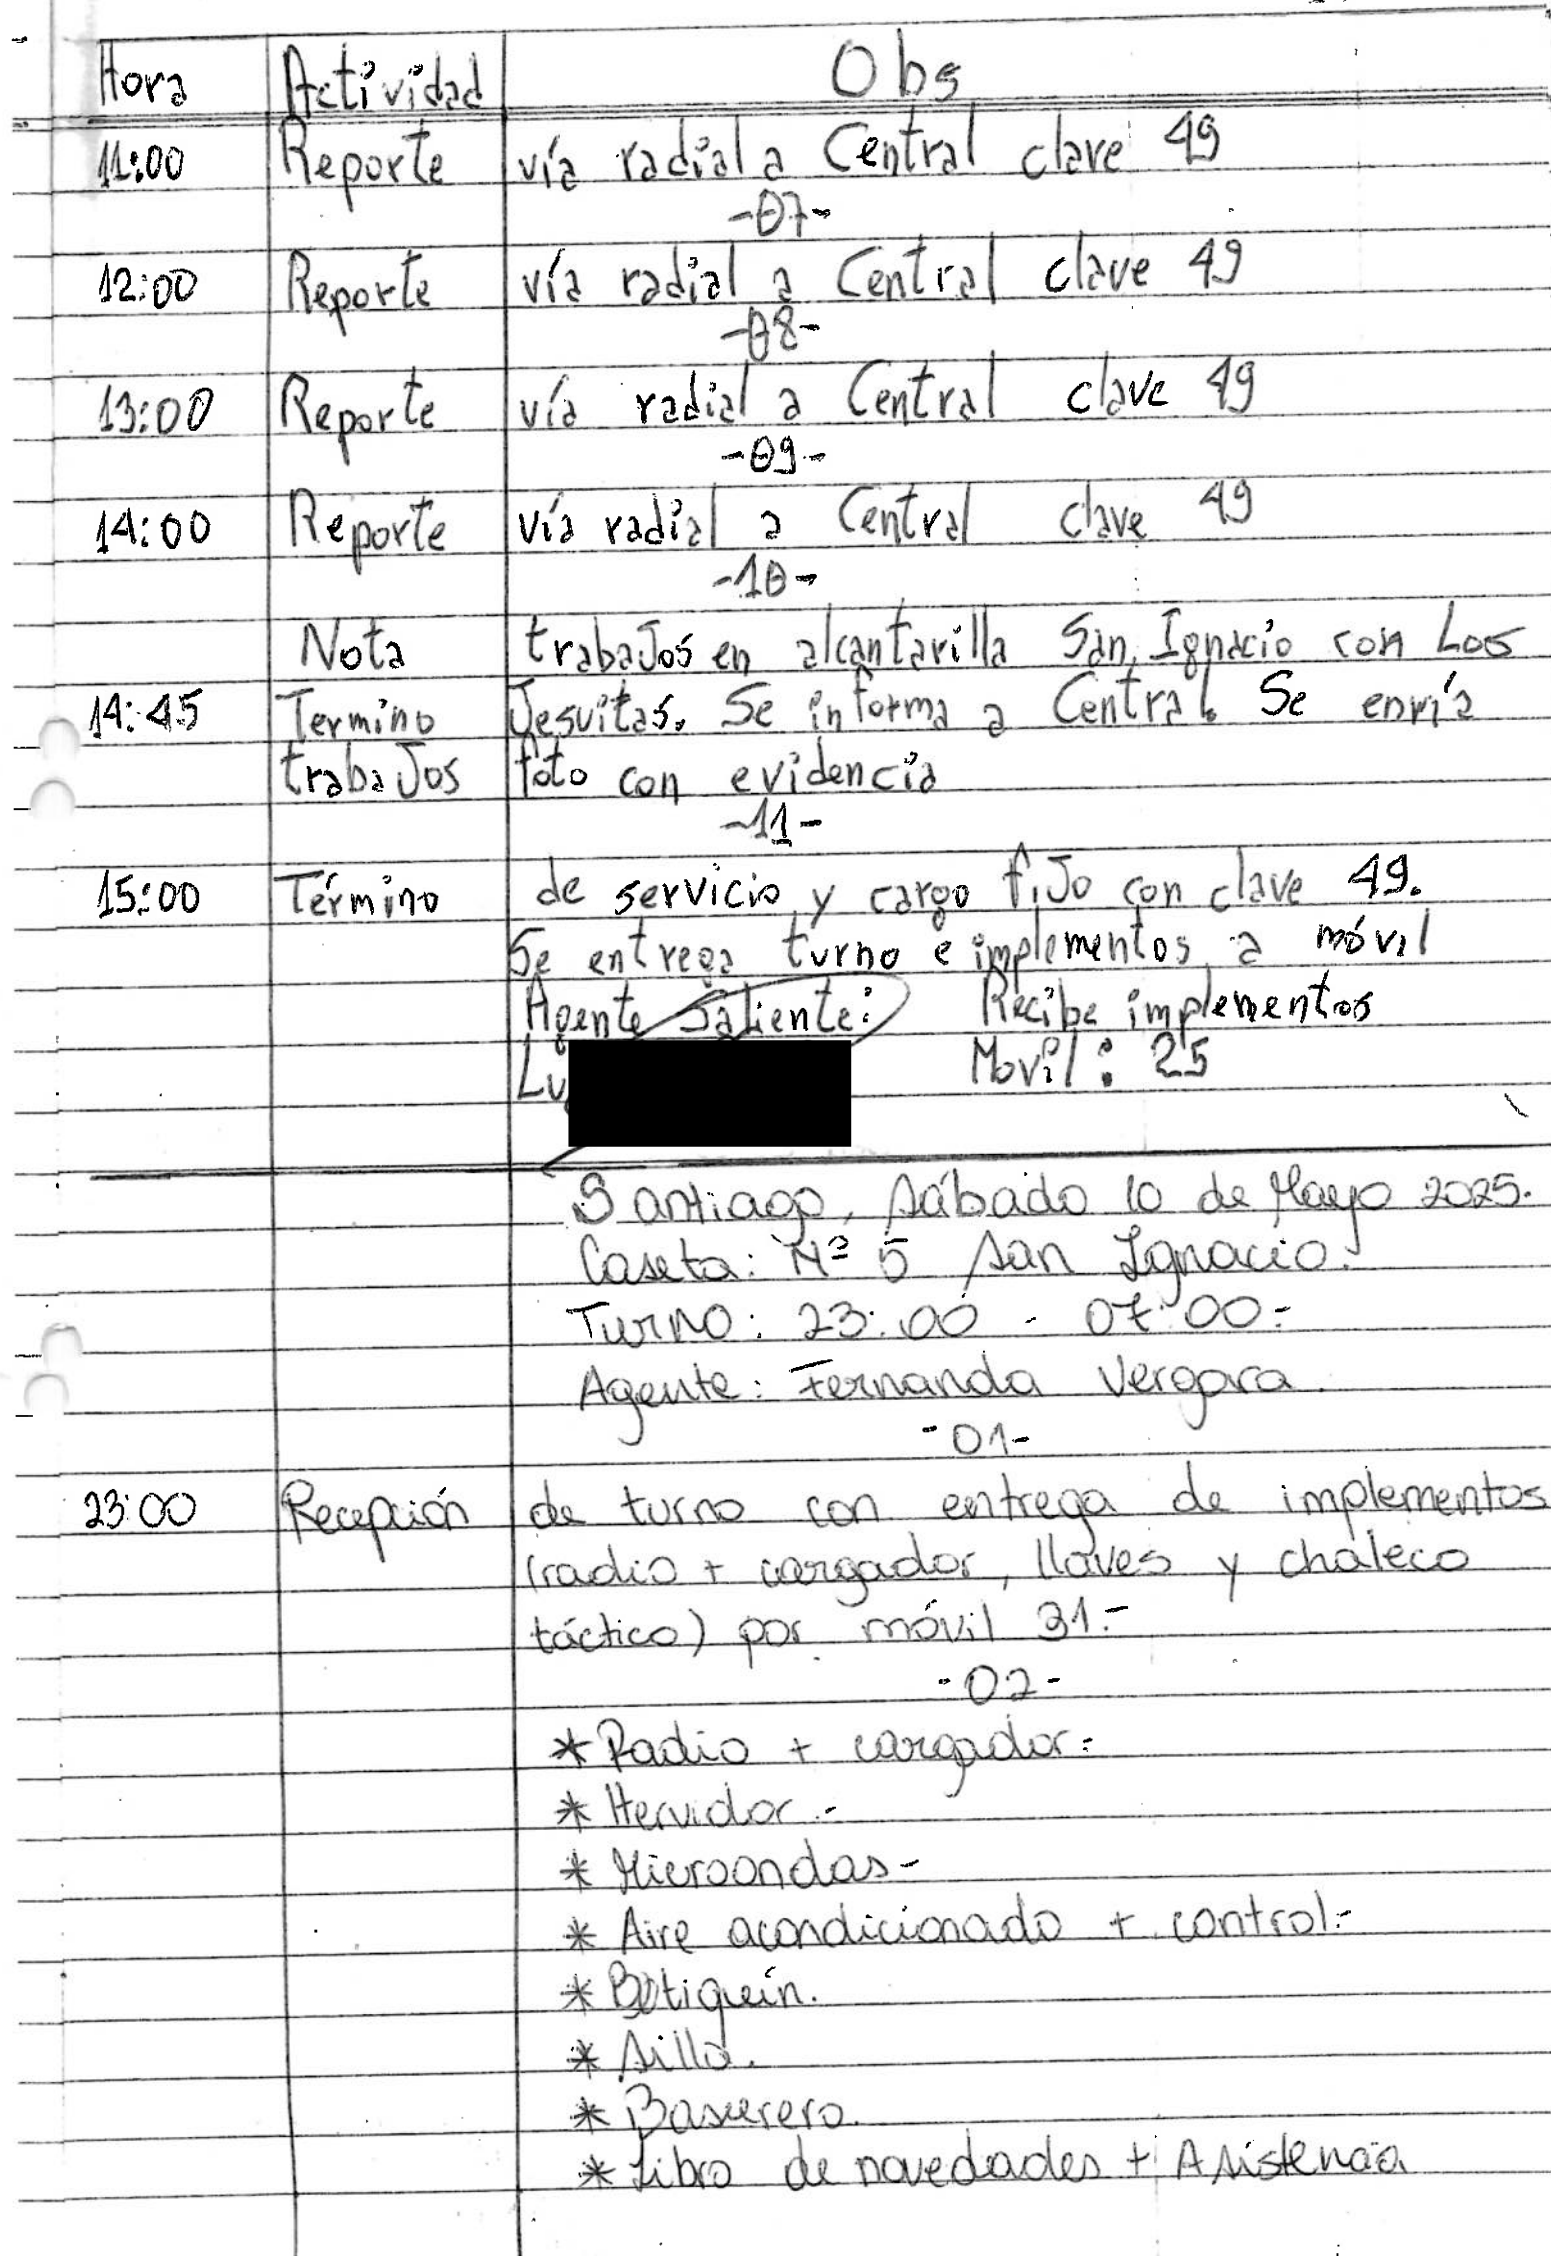 Hora Actividad Obs
11:00 Reporte vía radial a Central clave 49
-07-
12:00 Reporte vía radial a Central clave 49
-08-
13:00 Reporte vía radial a Central clave 49
-09-
14:00 Reporte vía radial a Central clave 49
-10-
Nota trabaJos en alcantarilla San Ignacio con Los
14:45 Termino Jesuitas. Se informa a Central. Se envía
trabaJos foto con evidencia
-11-
15:00 Término de servicio y cargo fiJo con clave 49.
Se entrega turno e implementos a móvil
Agente Saliente: Recibe implementos
Movil: 25
Santiago, Sábado 10 de Mayo 2025.
Caseta: Nº 5 San Ignacio.
Turno: 23:00 - 07:00.-
Agente: Fernanda Vergara.
-01-
23:00 Recepción de turno con entrega de implementos
(radio + cargador, llaves y chaleco
táctico) por móvil 31.-
-02-
* Radio + cargador.-
* Hervidor.-
* Microondas-
* Aire acondicionado + control.-
* Botiquín.
* Silla.
* Basurero.
* Libro de novedades + Asistencia